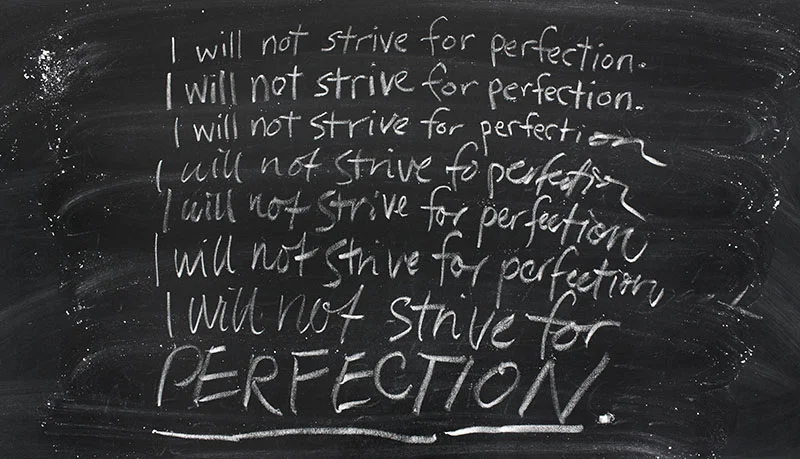 I will not strive for perfection.
I will not strive for perfection.
I will not strive for perfection
I will not strive fo perfection
I will not strive for perfection
I will not strive for perfection
I will not strive for
PERFECTION.